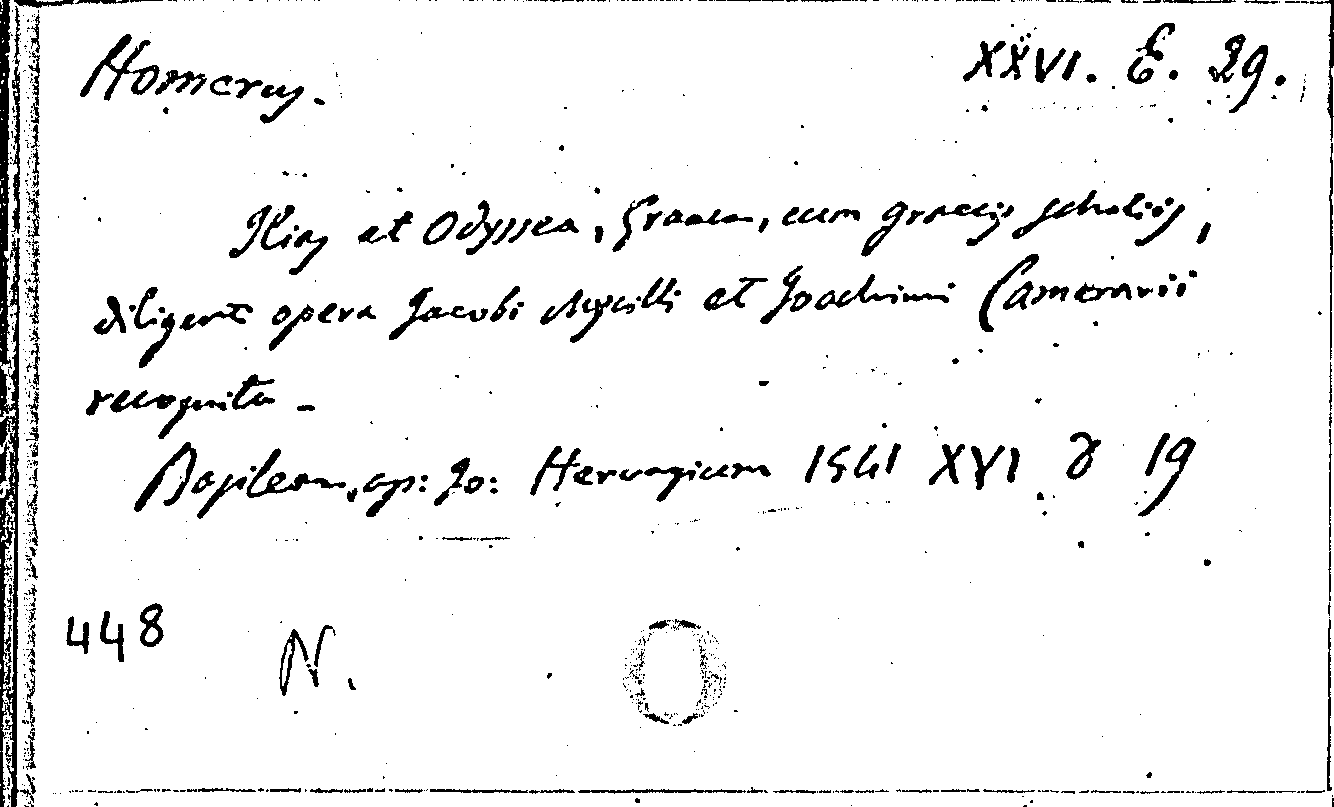 Homerus. XXVI. E. 29.
Ilias et Odyssea, Graece, cum graecis scholiis,
diligenti opera Jacobi Mycilli et Joachimi Camerarii
recognita -
Basileae, ap: Jo: Hervagium 1541 XVI 19
448 N.